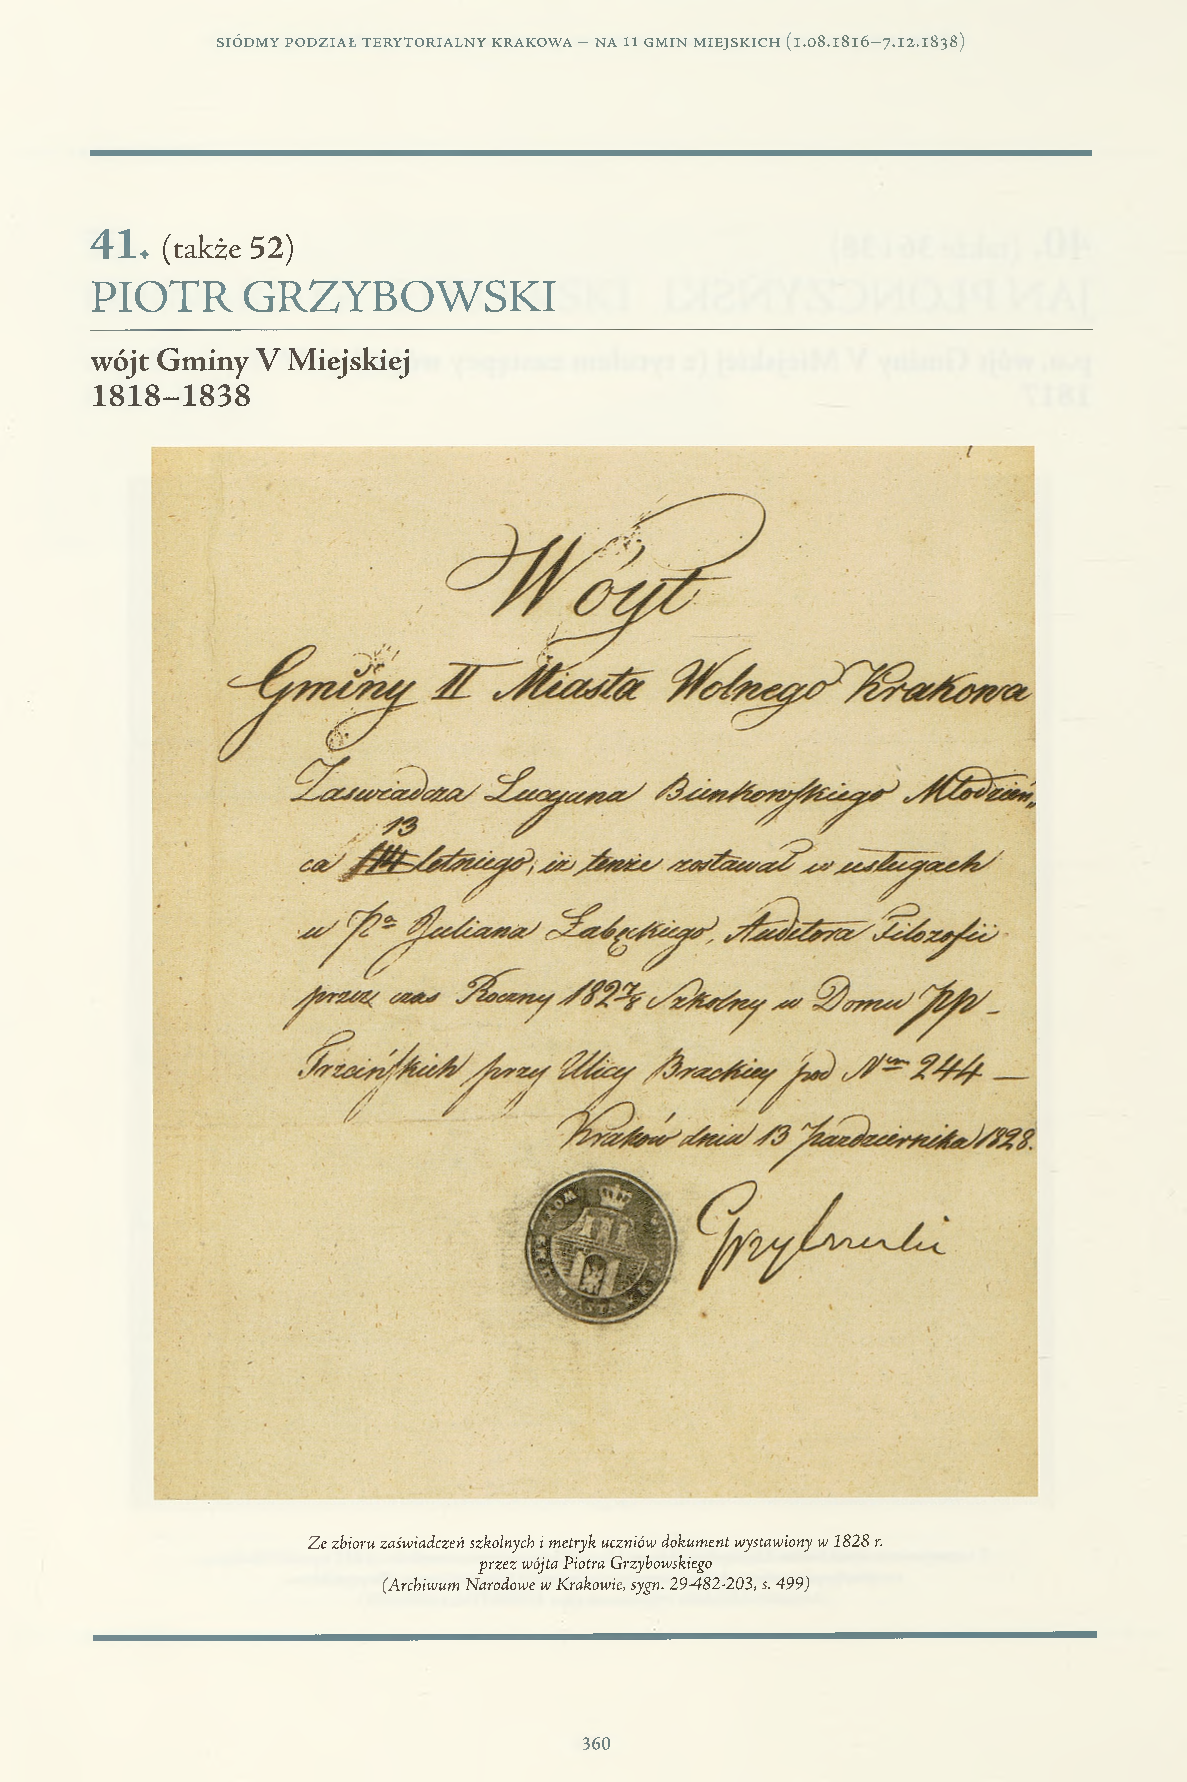 SIÓDMY PODZIAŁ TERYTORIALNY KRAKOWA – NA 11 GMIN MIEJSKICH (1.08.1816–7.12.1838)
41. (także 52)
PIOTR GRZYBOWSKI
wójt Gminy V Miejskiej
1818–1838
Wóyt
Gminy II Miasta Wolnego Krakowa
Zaswiadcza Lucyana Bienkowskiego Młodzień„
13
ca letniego, iż tenże zostawał w usługach
u Pª Juliana Łabęckiego, Auditora Filozofii
przez czas Roczny 1827/8 Szkolny w Domu pp –
Trzcińskich przy Ulicy Brackiey pod Nrm 244 —
Kraków dnia 13 Pazdziernika 1828.
Grzybowski
WOYT
MIASTA
Ze zbioru zaświadczeń szkolnych i metryk uczniów dokument wystawiony w 1828 r.
przez wójta Piotra Grzybowskiego
(Archiwum Narodowe w Krakowie, sygn. 29-482-203, s. 499)
360